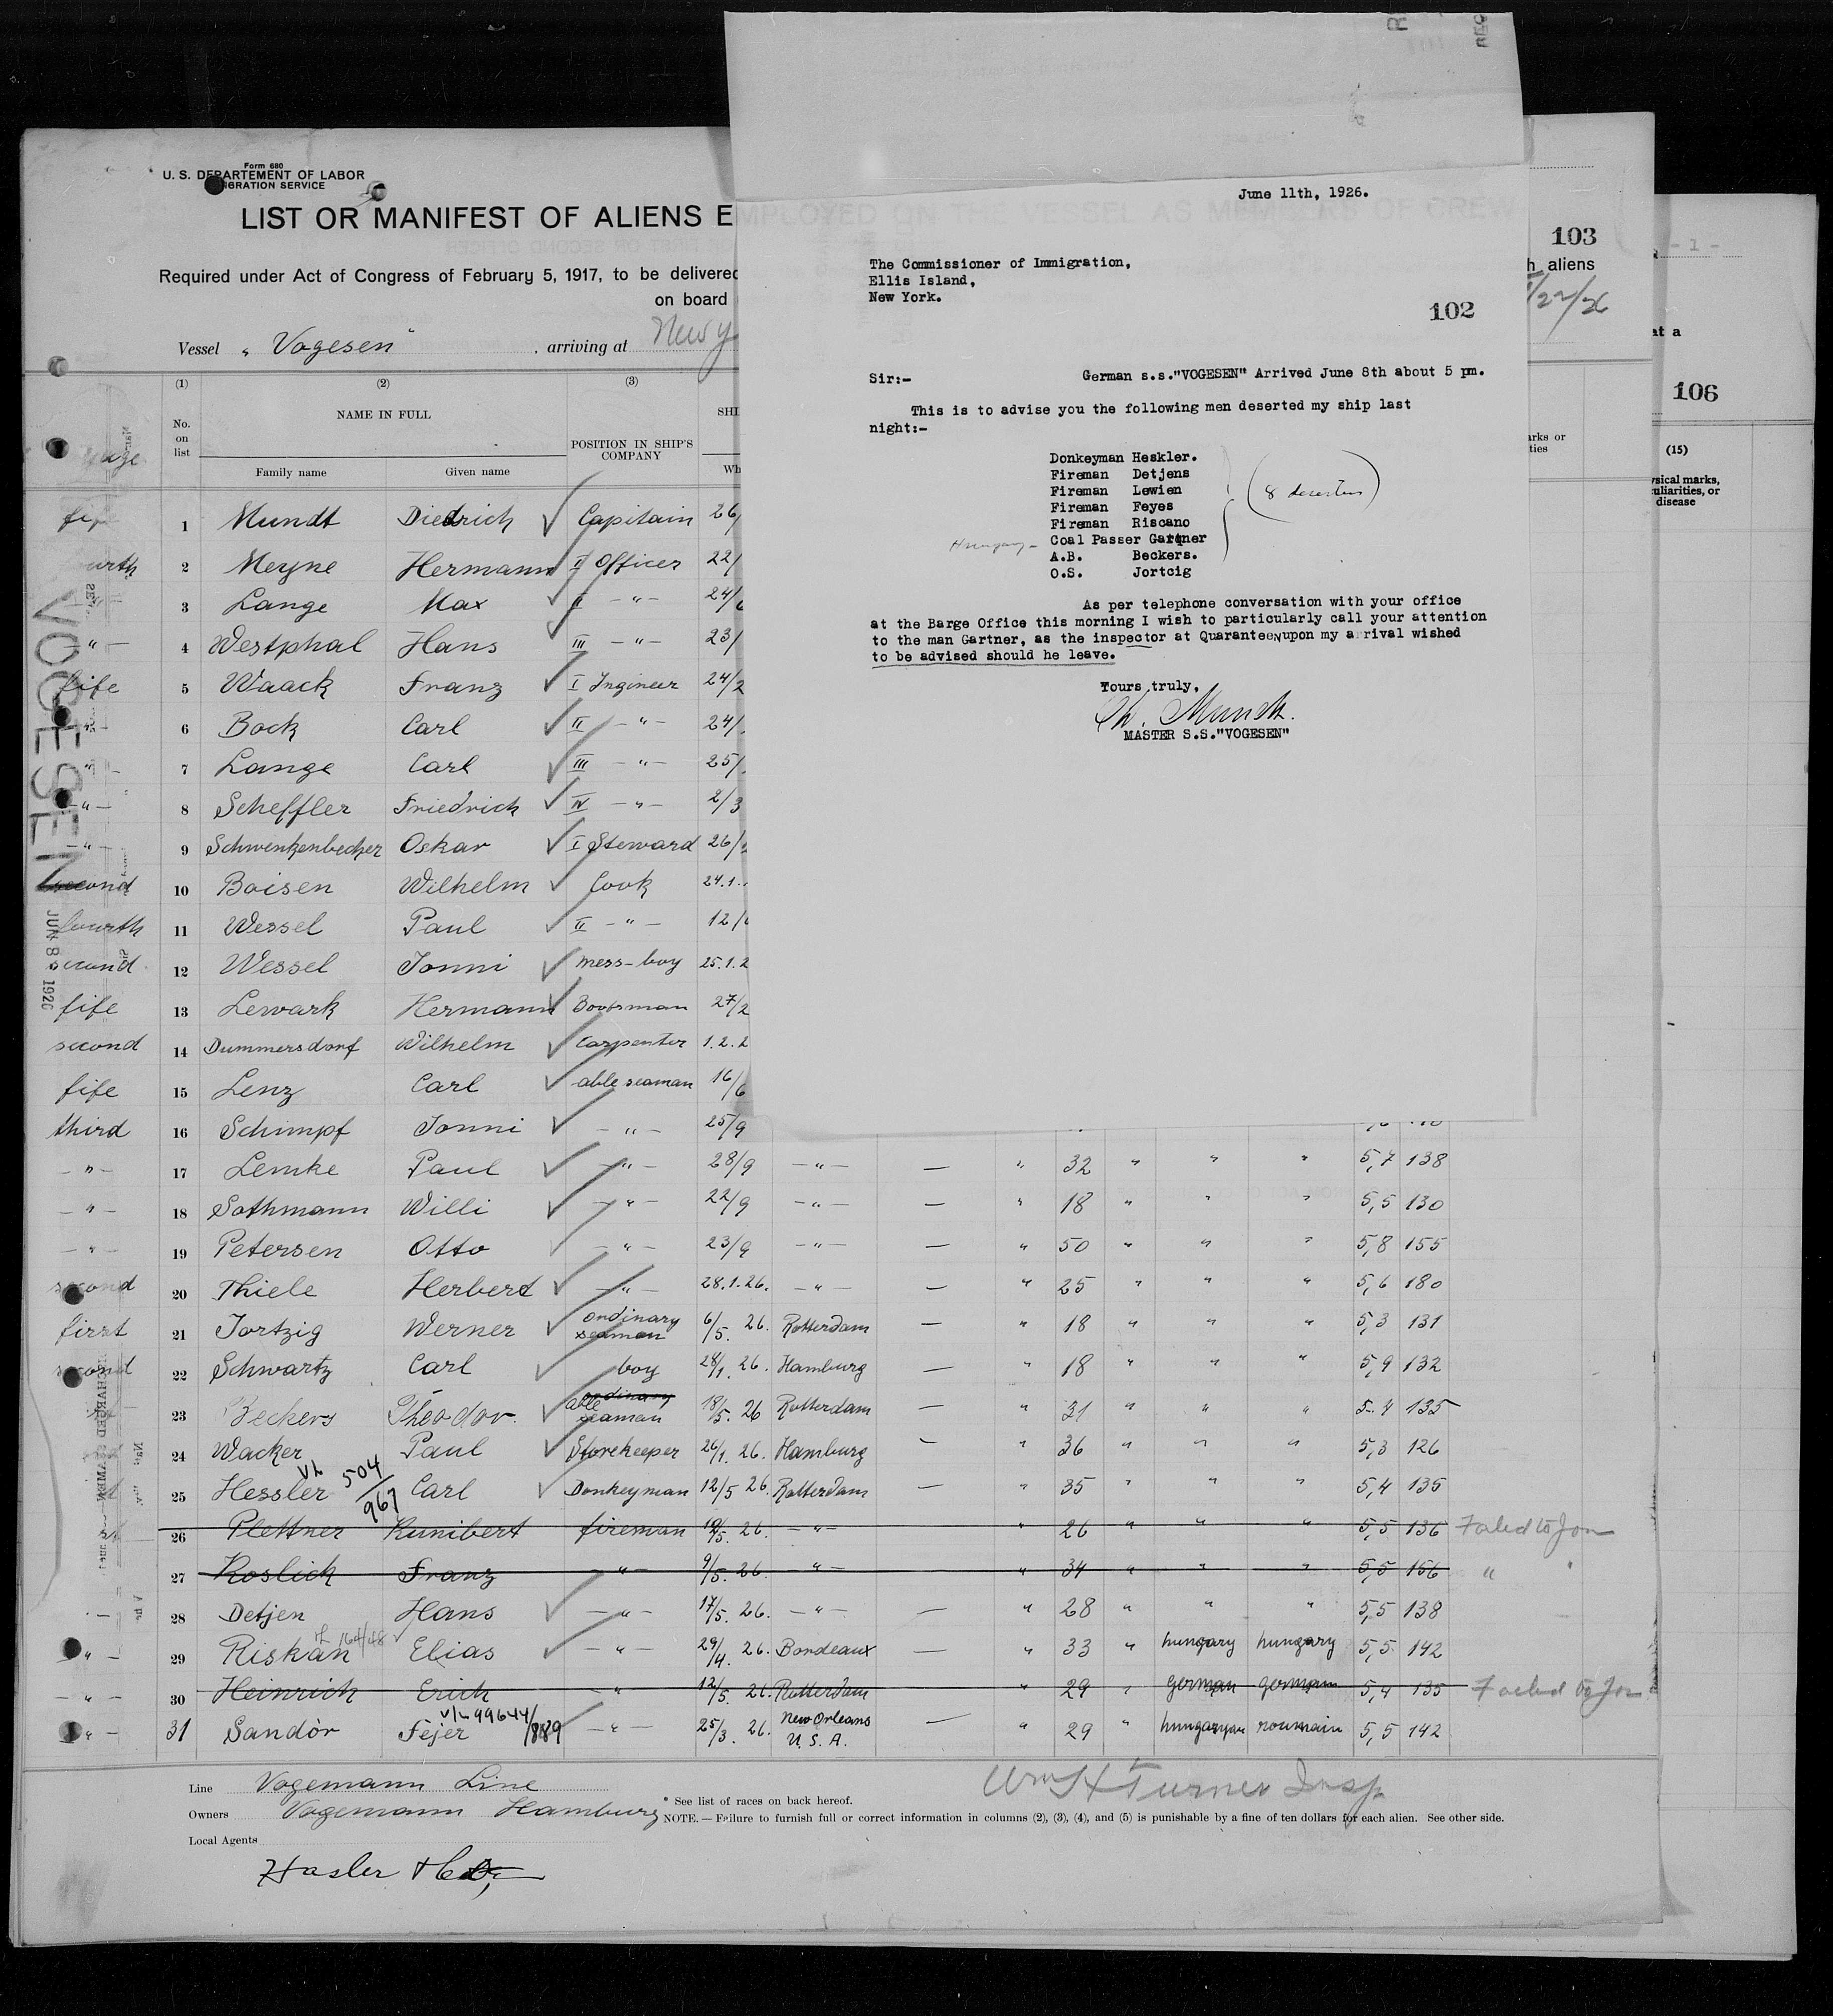 Form 680
U. S. DEPARTEMENT OF LABOR
IGRATION SERVICE
LIST OR MANIFEST OF ALIENS E
Required under Act of Congress of February 5, 1917, to be delivered
on board
Vessel „ Vogesen" , arriving at New Y
VOGESEN
JUN 8 1926
(1) (2) (3)
No. on list
NAME IN FULL
POSITION IN SHIP'S COMPANY
Family name Given name
1 Mundt Diedrich Capitain 26/
fourth 2 Meyne Hermann I Officer 22/
3 Lange Max II -"- 24/6
-"- 4 Westphal Hans III -"- 23/
fife 5 Waack Franz I Ingineer 24/2
-"- 6 Bock Carl II -"- 24/
-"- 7 Lange Carl III -"- 25/
-"- 8 Scheffler Friedrich IV -"- 2/3
-"- 9 Schwenkenbecher Oskar I Steward 26/
second 10 Boisen Wilhelm Cook 24.1.
fourth 11 Wessel Paul II -"- 12/
second 12 Wessel Jonni mess-boy 25.1.2
fife 13 Lewark Hermann Bootsman 27/2
second 14 Dummersdorf Wilhelm Carpenter 1.2.2
fife 15 Lenz Carl able seaman 16/6
third 16 Schimpf Jonni -"- 25/9
-"- 17 Lemke Paul -"- 28/9 -"- — " 32 " " " 5,7 138
-"- 18 Sothmann Willi -"- 22/9 -"- — " 18 " " " 5,5 130
-"- 19 Petersen Otto -"- 23/9 -"- — " 50 " " " 5,8 155
second 20 Thiele Herbert -"- 28.1.26. -"- — " 25 " " " 5,6 180
first 21 Jortzig Werner ordinary seaman 6/5. 26. Rotterdam — " 18 " " " 5,3 131
second 22 Schwartz Carl boy 28/1. 26. Hamburg — " 18 " " " 5,9 132
23 Beckers Theodor. able ordinary seaman 18/5. 26 Rotterdam — " 31 " " " 5.4 135
24 Wacker Paul Storekeeper 26/1. 26. Hamburg — " 36 " " " 5,3 126
25 Hessler VL 504/967 Carl Donkeyman 12/5 26. Rotterdam — " 35 " " " 5,4 135
26 Plettner Kunibert fireman 26. -"- " 26 " " " 5,5 136 Failed to Join
27 Koslick Franz -"- 9/5. 26. -"- " 34 " " " 5,5 156 " "
28 Detjen Hans -"- 17/5. 26. -"- — " 28 " " " 5,5 138
-"- 29 Riskan 164/48 Elias -"- 29/4. 26. Bordeaux — " 33 " hungary hungary 5,5 142
-"- 30 Heinrich Erich -"- 12/5. 26. Rotterdam " 29 " german german 5,4 135 Failed to Join
-"- 31 Sandòr Fejer v/L 99644/889 -"- 25/3. 26. New Orleans U. S. A. — " 29 " hungaryan roumain 5,5 142
Line Vogemann Line
Owners Vogemann Hamburg
Local Agents
Hasler & Co,
* See list of races on back hereof.
Wm H Turner Insp
NOTE. — Failure to furnish full or correct information in columns (2), (3), (4), and (5) is punishable by a fine of ten dollars for each alien. See other side.
June 11th, 1926.
The Commissioner of Immigration,
Ellis Island,
New York.
102
Sir:- German s.s."VOGESEN" Arrived June 8th about 5 pm.
This is to advise you the following men deserted my ship last
night:-
Donkeyman Heskler.
Fireman Detjens
Fireman Lewien
Fireman Feyes
Fireman Riscano
Hungary - Coal Passer Gartner
A.B. Beckers.
O.S. Jortcig
(8 deserters)
As per telephone conversation with your office
at the Barge Office this morning I wish to particularly call your attention
to the man Gartner, as the inspector at Quaranteen upon my arrival wished
to be advised should he leave.
Yours truly,
MASTER S.S."VOGESEN"
103
h aliens
/22/26
arks or
ties
- 1 -
at a
106
(15)
ysical marks,
uliarities, or
disease